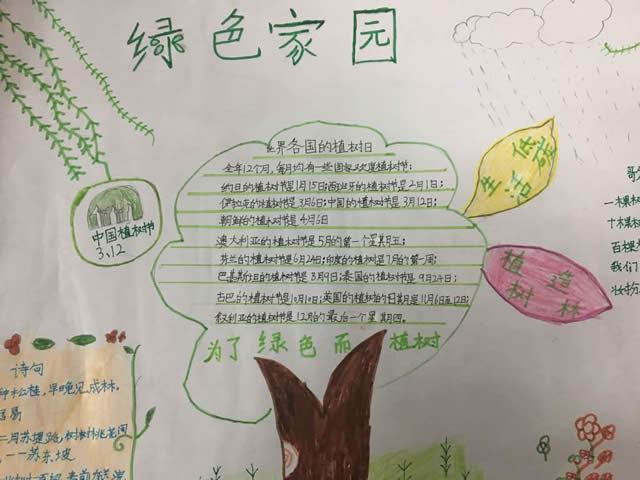 绿色家园
世界各国的植树日
全年12个月,每月均有一些国家又欢度植树节:
约旦的植树节是1月15日;西班牙的植树节是2月1日;
伊拉克的植树节是3月6日;中国的植树节是3月12日;
朝鲜的植树节是4月6日
澳大利亚的植树节是5月的第一个星期五;
芬兰的植树节是6月24日;印度的植树节是7月的第一周;
巴基斯坦的植树节是8月9日;泰国的植树节是9月24日;
古巴的植树节是10月10日;英国的植树节的日期是11月6日至12日;
叙利亚的植树节是12月的最后一个星期四。
为了绿色而植树
低碳
生活
植树
造林
中国植树节
3、12
诗句
种松桂,早晚见成林,
居易
二月苏堤路,树树桃花间
——苏东坡
一棵树
十棵树
百棵
我们
妆扮